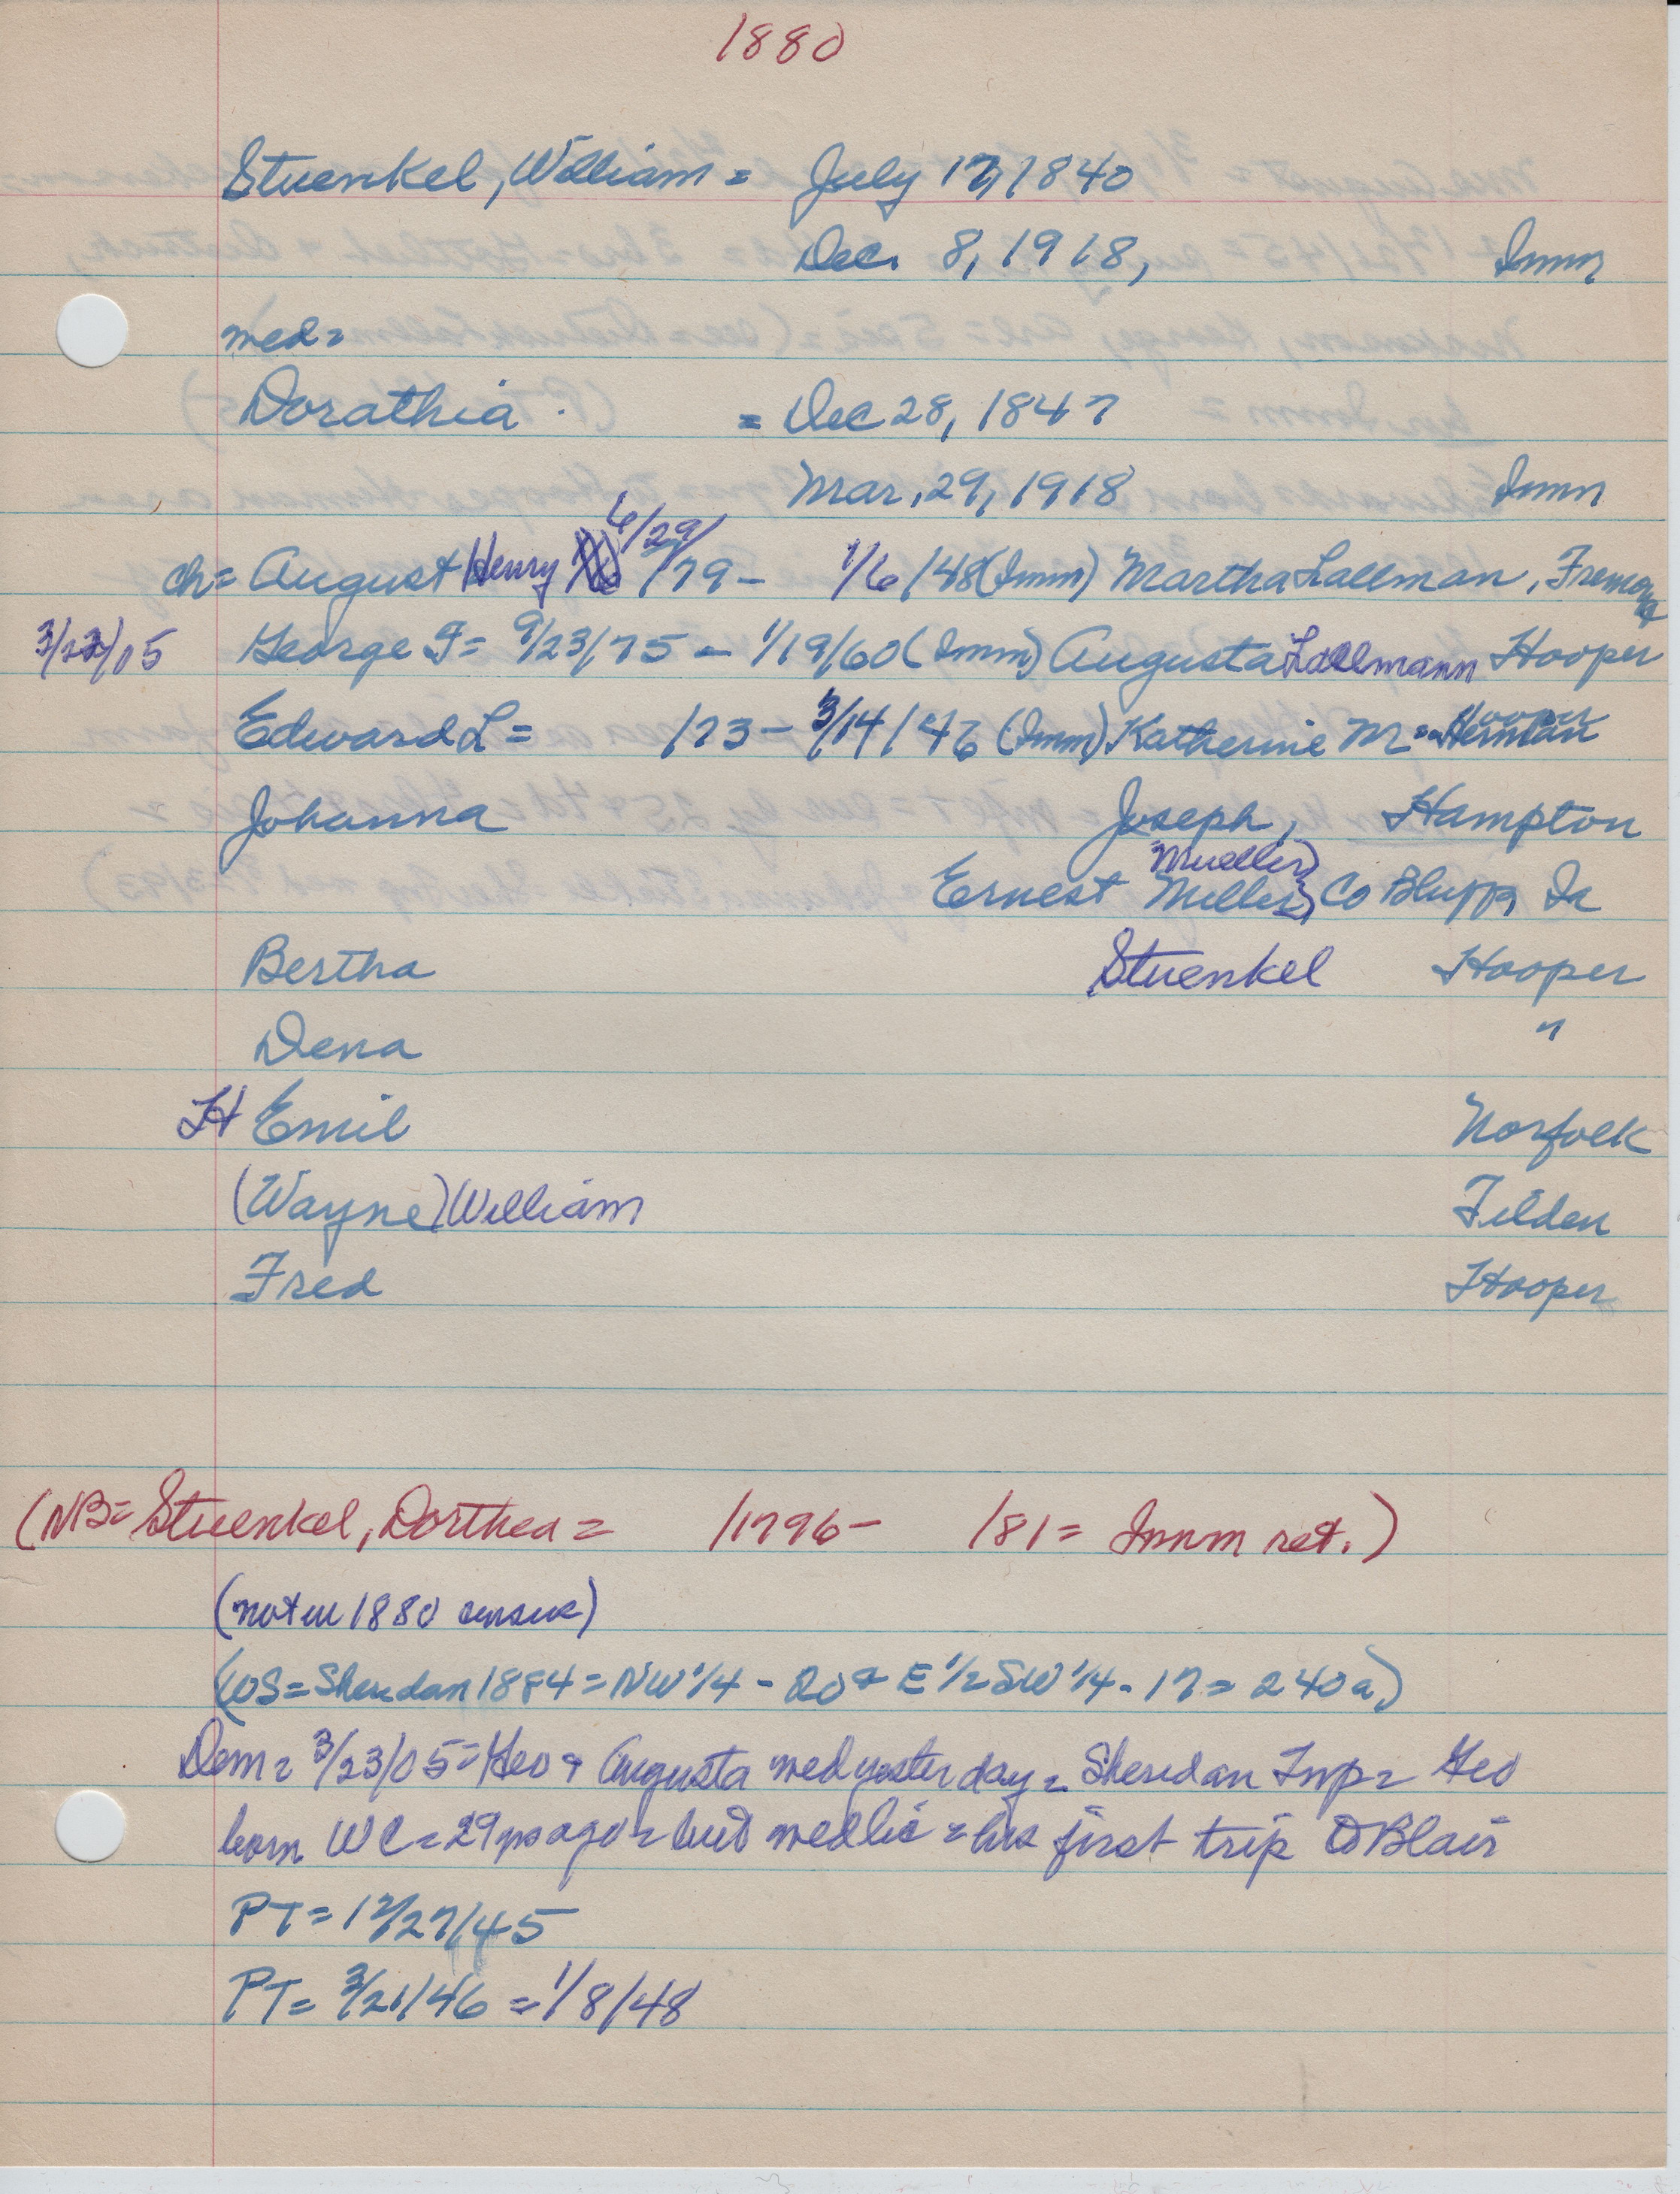 1880
Stuenkel, William = July 17, 1840
Dec. 8, 1918, Imm
med =
Dorathia = Dec 28, 1847
Mar. 29, 1918 Imm
ch = August Henry 6/29/79 - 1/6/48 (Imm) Martha Lallman, Fremont
3/22/05 George F = 9/23/75 - 1/19/60 (Imm) Augusta Lallmann Hooper
Edward L = /73 - 3/14/46 (Imm) Katherine M = Hooper
Herman
Johanna Joseph, Hampton
Mueller)
Ernest Miller, Co Bluffs, Ia
Bertha Stuenkel Hooper
Dena "
H Emil Norfolk
(Wayne) William Tilden
Fred Hooper
(NB = Stuenkel, Dorthea = /1796 - /81 = Imm ret.)
(not in 1880 census)
(WS = Sheridan 1884 = NW 1/4 - 20 & E 1/2 SW 1/4 - 17 = 240a)
Dem = 3/23/05 = Geo & Augusta med yesterday = Sheridan Twp = Geo
born WC = 29 yrs ago = but med lic = his first trip to Blair
PT = 12/27/45
PT = 3/21/46 = 1/8/48